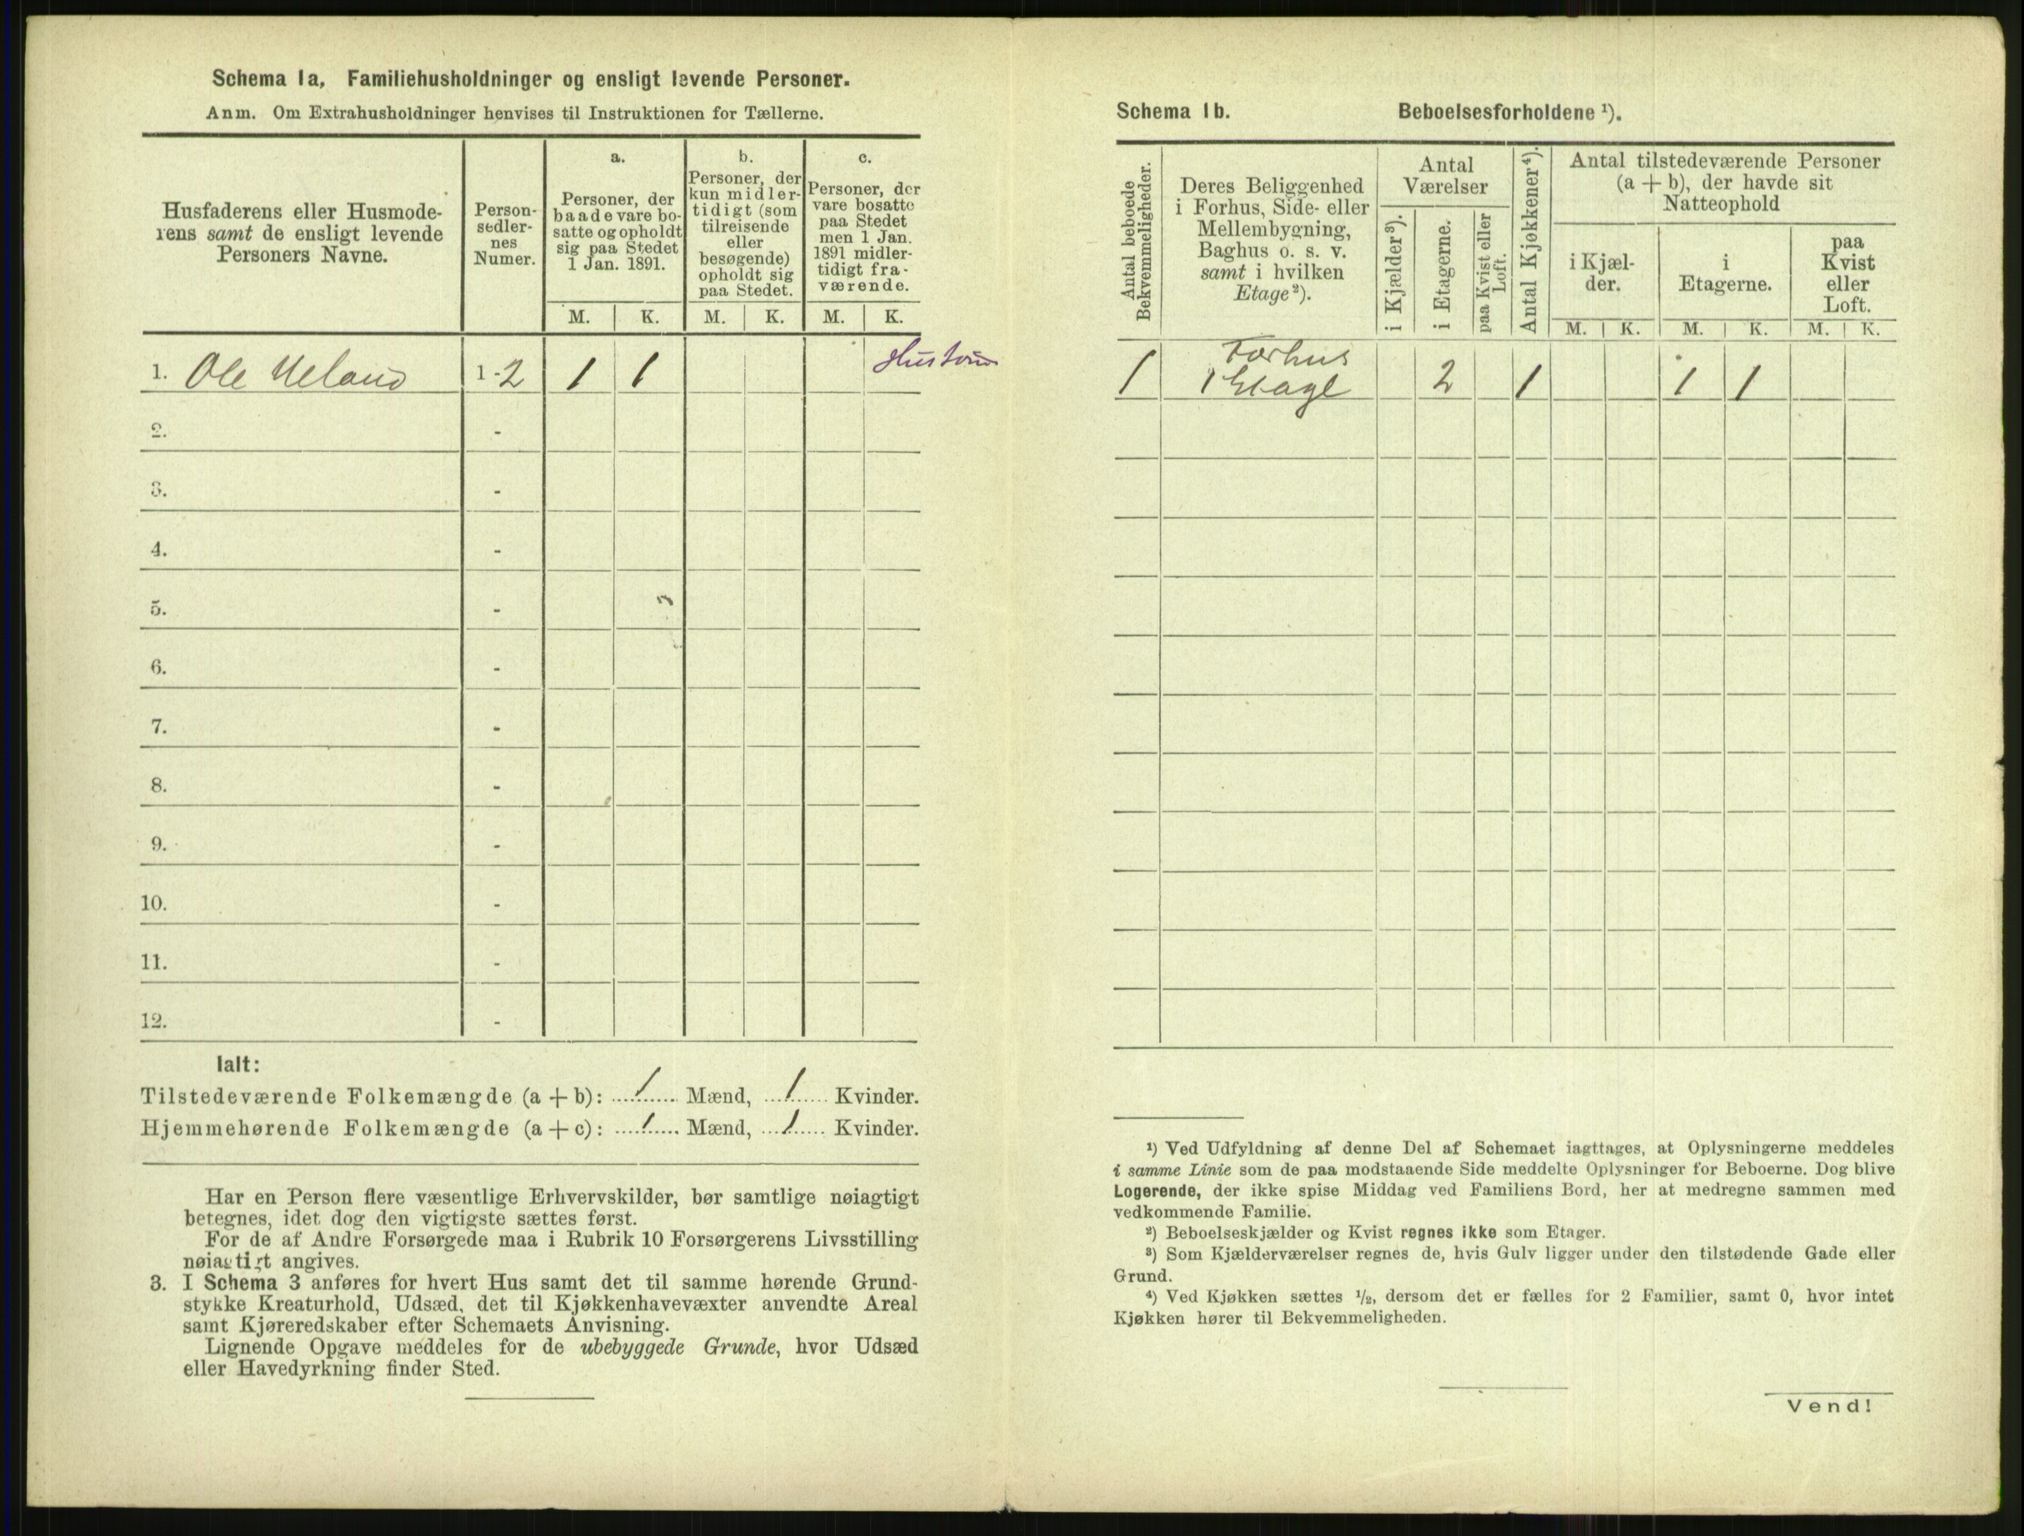 Schema Ia, Familiehusholdninger og ensligt levende Personer.
Anm. Om Extrahusholdninger henvises til Instruktionen for Tællerne.
Husfaderens eller Husmode-
rens samt de ensligt levende
Personers Navne.
Person-
sedler-
nes
Numer.
a.
Personer, der
baade vare bo-
satte og opholdt
sig paa Stedet
1 Jan. 1891.
b.
Personer, der
kun midler-
tidigt (som
tilreisende
eller
besøgende)
opholdt sig
paa Stedet.
c.
Personer, der
vare bosatte
paa Stedet
men 1 Jan.
1891 midler-
tidigt fra-
værende.
M. K. M. K. M. K.
1. Ole Ueland 1-2 1 1
2. -
3. -
4. -
5. -
6. -
7. -
8. -
9. -
10. -
11. -
12. -
Ialt:
Tilstedeværende Folkemængde (a + b): 1 Mænd, 1 Kvinder.
Hjemmehørende Folkemængde (a + c): 1 Mænd, 1 Kvinder.
Har en Person flere væsentlige Erhvervskilder, bør samtlige nøiagtigt
betegnes, idet dog den vigtigste sættes først.
For de af Andre Forsørgede maa i Rubrik 10 Forsørgerens Livsstilling
nøiagtigt angives.
3. I Schema 3 anføres for hvert Hus samt det til samme hørende Grund-
stykke Kreaturhold, Udsæd, det til Kjøkkenhavevæxter anvendte Areal
samt Kjøreredskaber efter Schemaets Anvisning.
Lignende Opgave meddeles for de ubebyggede Grunde, hvor Udsæd
eller Havedyrkning finder Sted.
Schema Ib. Beboelsesforholdene ¹).
Antal beboede
Bekvemmeligheder.
Deres Beliggenhed
i Forhus, Side- eller
Mellembygning,
Baghus o. s. v.
samt i hvilken
Etage²).
Antal
Værelser
i Kjælder³).
i Etagerne.
paa Kvist eller
Loft.
Antal Kjøkkener⁴).
Antal tilstedeværende Personer
(a + b), der havde sit
Natteophold
i Kjæl-
der.
i
Etagerne.
paa
Kvist
eller
Loft.
M. K. M. K. M. K.
Forhus
1 1 Etage 2 1 1 1
¹) Ved Udfyldning af denne Del af Schemaet iagttages, at Oplysningerne meddeles
i samme Linie som de paa modstaaende Side meddelte Oplysninger for Beboerne. Dog blive
Logerende, der ikke spise Middag ved Familiens Bord, her at medregne sammen med
vedkommende Familie.
²) Beboelseskjælder og Kvist regnes ikke som Etager.
³) Som Kjælderværelser regnes de, hvis Gulv ligger under den tilstødende Gade eller
Grund.
⁴) Ved Kjøkken sættes ½, dersom det er fælles for 2 Familier, samt 0, hvor intet
Kjøkken hører til Bekvemmeligheden.
Vend!